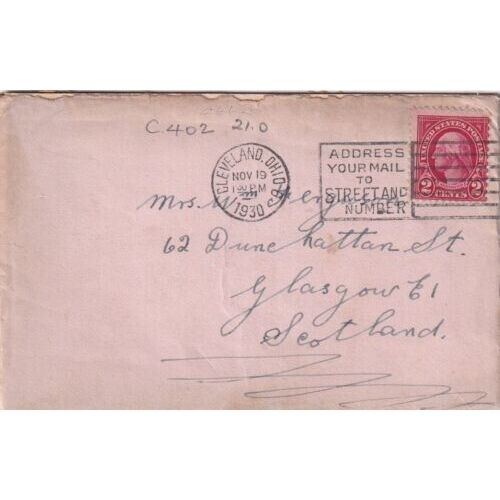 C.402 21.0
CLEVELAND, OHIO
NOV 19
1930
ADDRESS
YOUR MAIL
TO
STREET AND
NUMBER
UNITED STATES POSTAGE
2 CENTS 2
Mrs.
62 Dunchattan St.
Glasgow E1
Scotland.